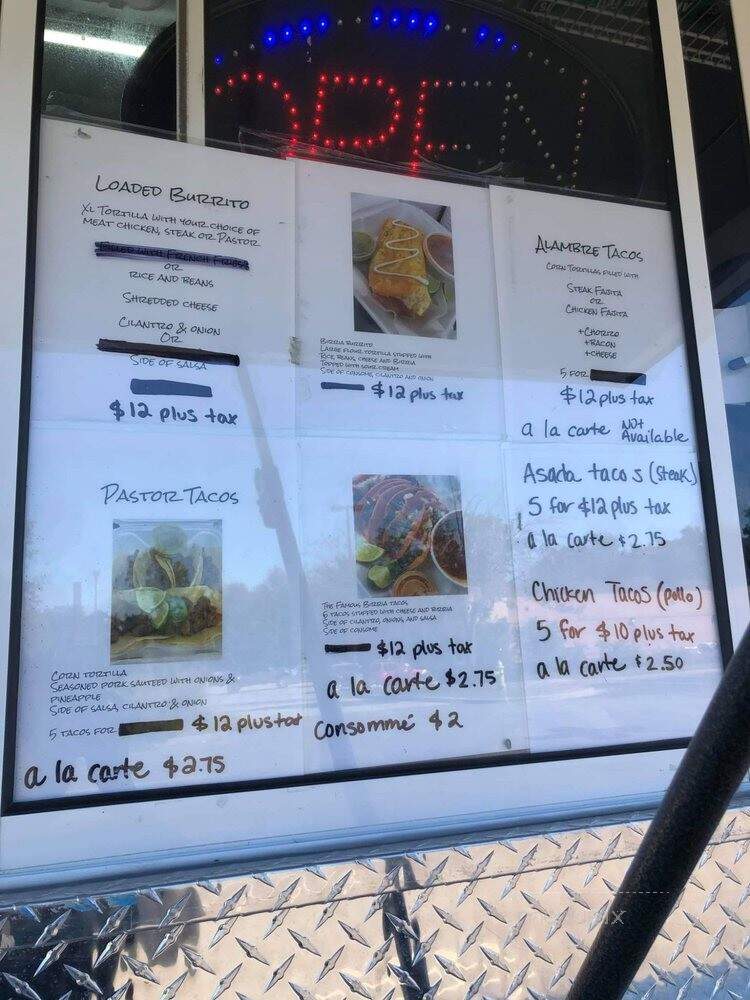 OPEN
LOADED BURRITO
XL TORTILLA WITH YOUR CHOICE OF
MEAT CHICKEN, STEAK OR PASTOR
FILLED WITH FRENCH FRIES
OR
RICE AND BEANS
SHREDDED CHEESE
CILANTRO & ONION
OR
SIDE OF SALSA
$12 plus tax
BIRRIA BURRITO
LARGE FLOUR TORTILLA STUFFED WITH
RICE, BEANS, CHEESE AND BIRRIA
TOPPED WITH SOUR CREAM
SIDE OF CONSOME, CILANTRO AND ONION
$12 plus tax
ALAMBRE TACOS
CORN TORTILLAS FILLED WITH
STEAK FAJITA
OR
CHICKEN FAJITA
+CHORIZO
+BACON
+CHEESE
5 FOR
$12 plus tax
a la carte NOT Available
PASTOR TACOS
CORN TORTILLA
SEASONED PORK SAUTEED WITH ONIONS &
PINEAPPLE
SIDE OF SALSA, CILANTRO & ONION
5 TACOS FOR $12 plus tax
a la carte $2.75
THE FAMOUS BIRRIA TACOS
5 TACOS STUFFED WITH CHEESE AND BIRRIA
SIDE OF CILANTRO, ONIONS AND SALSA
SIDE OF CONSOME
$12 plus tax
a la carte $2.75
Consommé $2
Asada tacos (Steak)
5 for $12 plus tax
a la carte $2.75
Chicken Tacos (pollo)
5 for $10 plus tax
a la carte $2.50